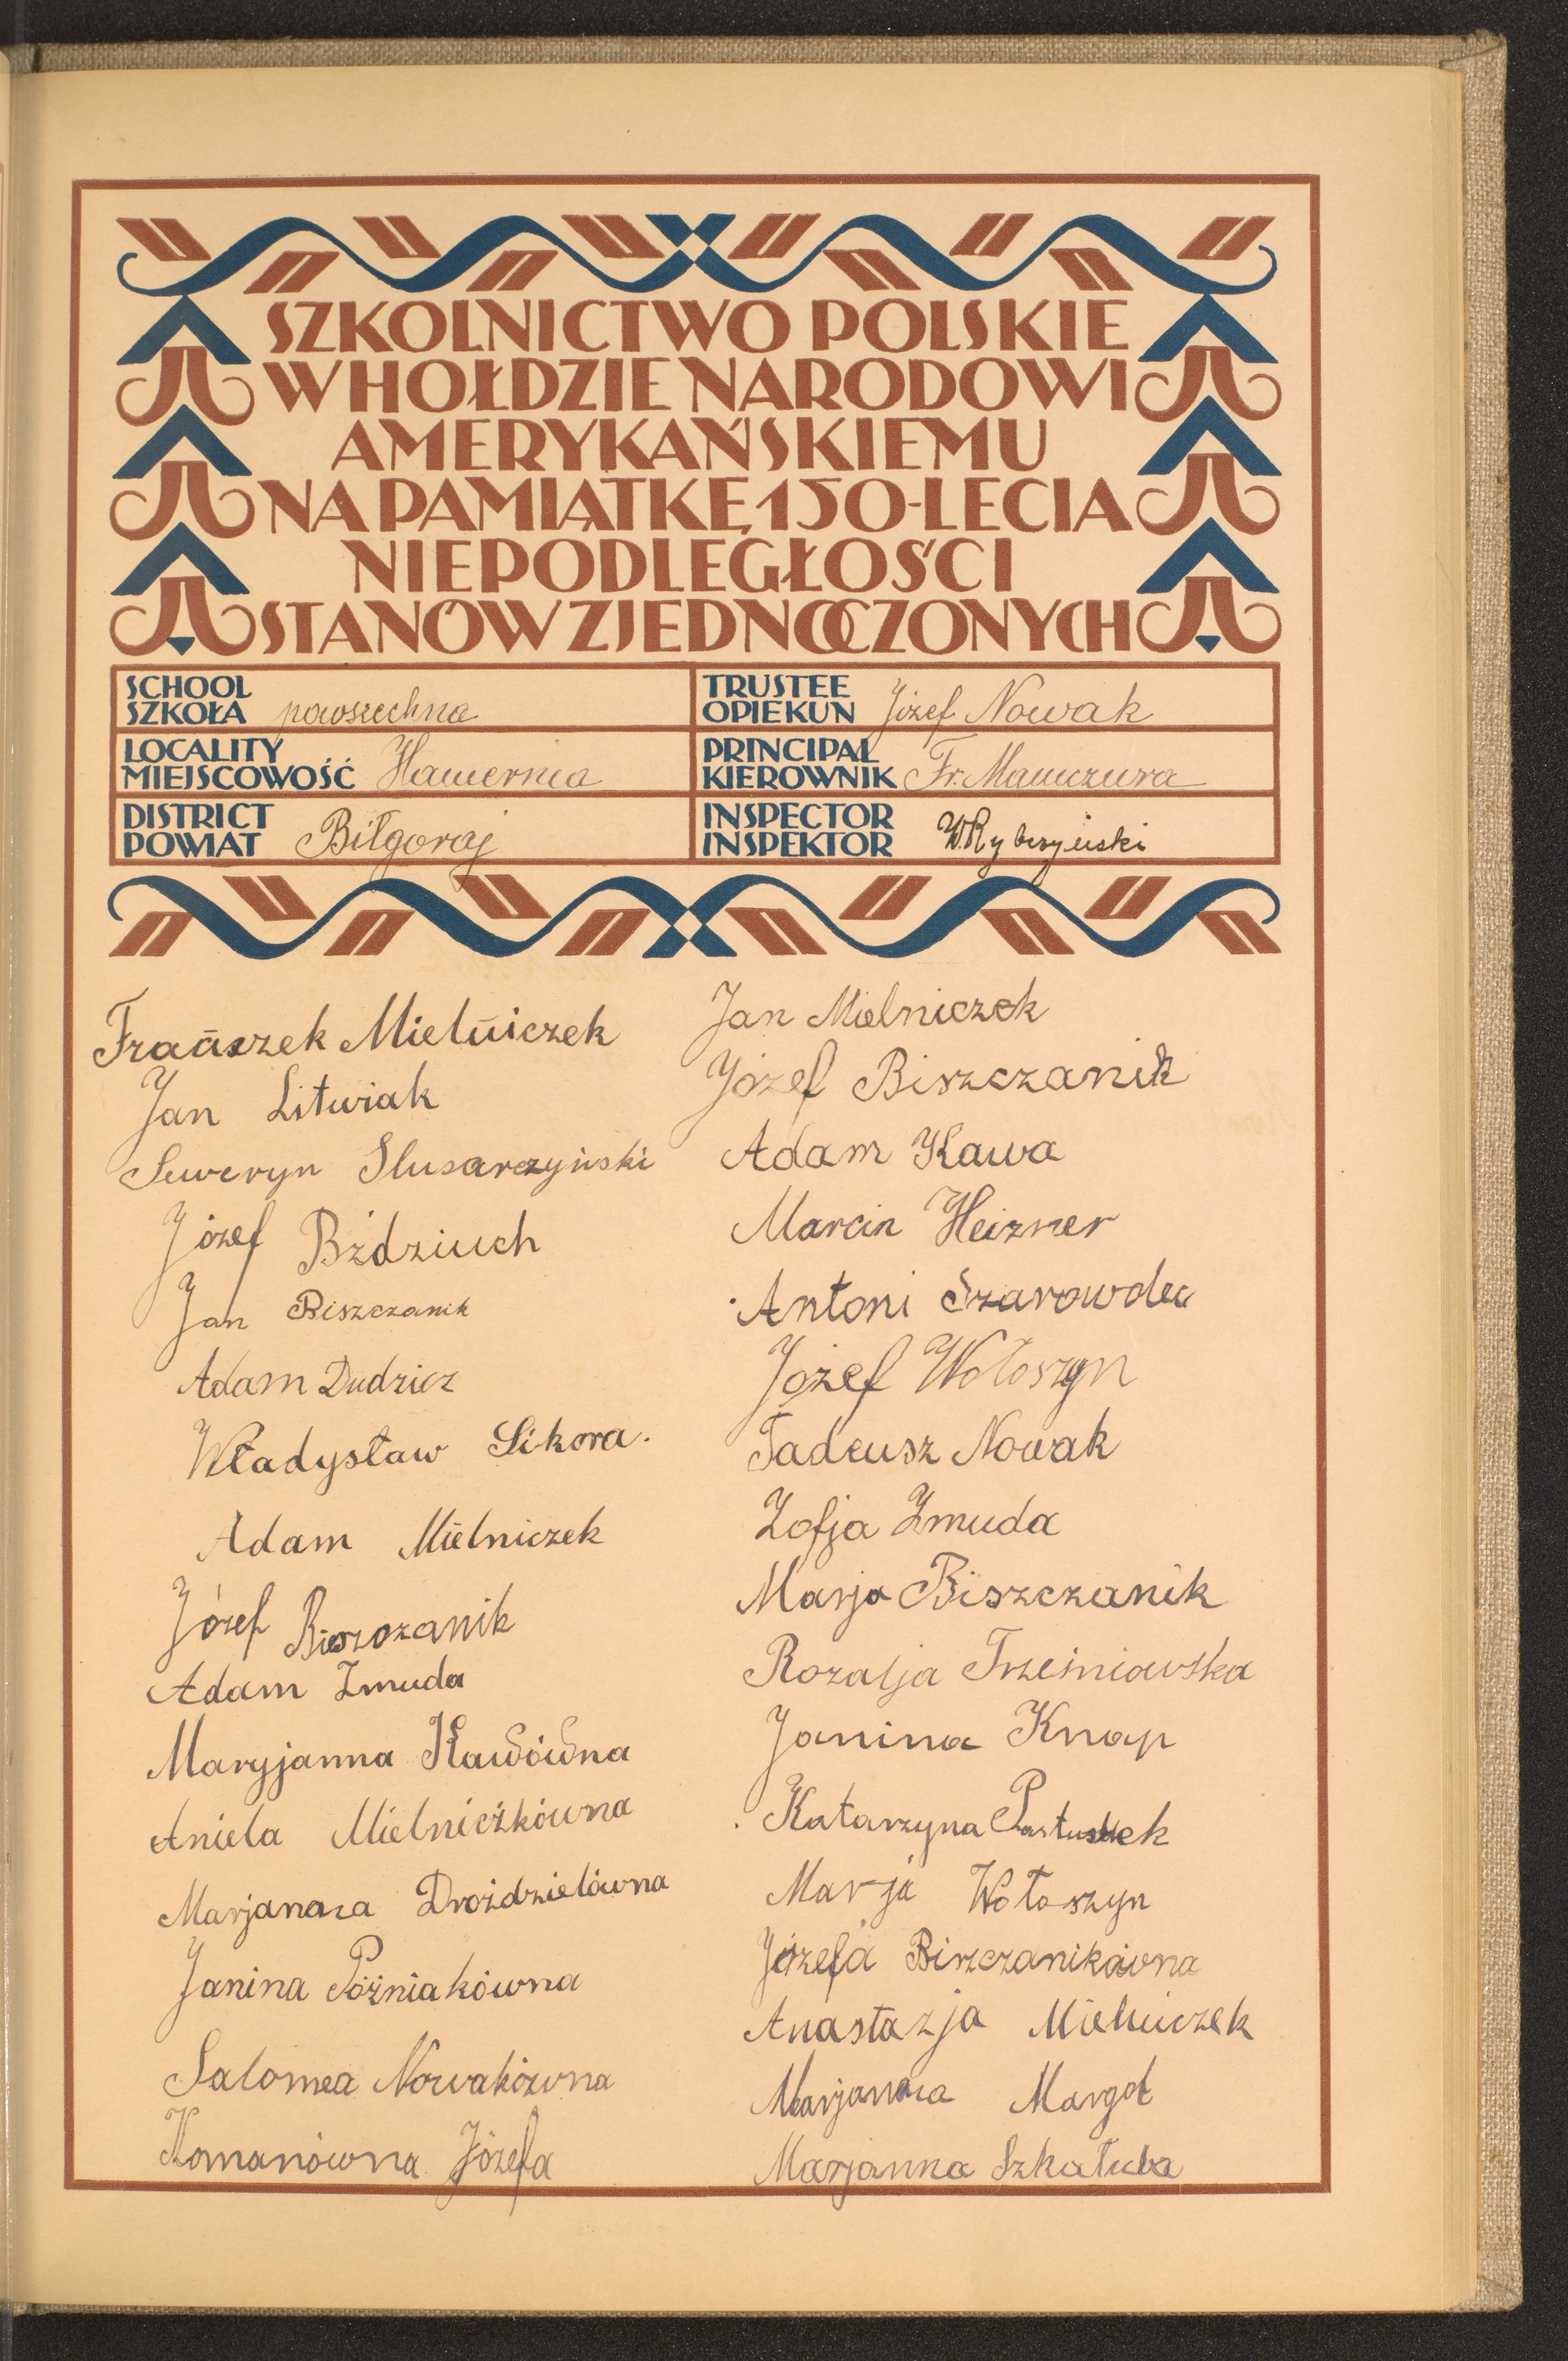 SZKOLNICTWO POLSKIE
W HOŁDZIE NARODOWI
AMERYKAŃSKIEMU
NA PAMIĄTKĘ 150-LECIA
NIEPODLEGŁOŚCI
STANÓW ZJEDNOCZONYCH
SCHOOL
SZKOŁA powszechna
TRUSTEE
OPIEKUN Józef Nowak
LOCALITY
MIEJSCOWOŚĆ Hamernia
PRINCIPAL
KIEROWNIK Fr. Mamczura
DISTRICT
POWIAT Biłgoraj
INSPECTOR
INSPEKTOR W. Rybczyński
Frańszek Mielńiczek
Jan Litwiak
Seweryn Slusarczyński
Józef Bździuch
Jan Biszczanik
Adam Dudzicz
Władysław Sikora.
Adam Mielniczek
Józef Biszczanik
Adam Zmuda
Maryjanna Kawówna
Aniela Mielniczkówna
Marjanna Droździelówna
Janina Póżniakówna
Salomea Nowakówna
Komanówna Józefa
Jan Mielniczek
Józef Biszczanik
Adam Kawa
Marcin Heizner
Antoni Szarowdec
Józef Wołoszyn
Tadeusz Nowak
Zofja Zmuda
Marja Biszczanik
Rozalja Trześniowska
Janina Knap
Katarzyna Pastuszek
Marja Wołoszyn
Józefa Biszczanikówna
Anastazja Mielniczek
Marjanna Margol
Marjanna Szkałuba